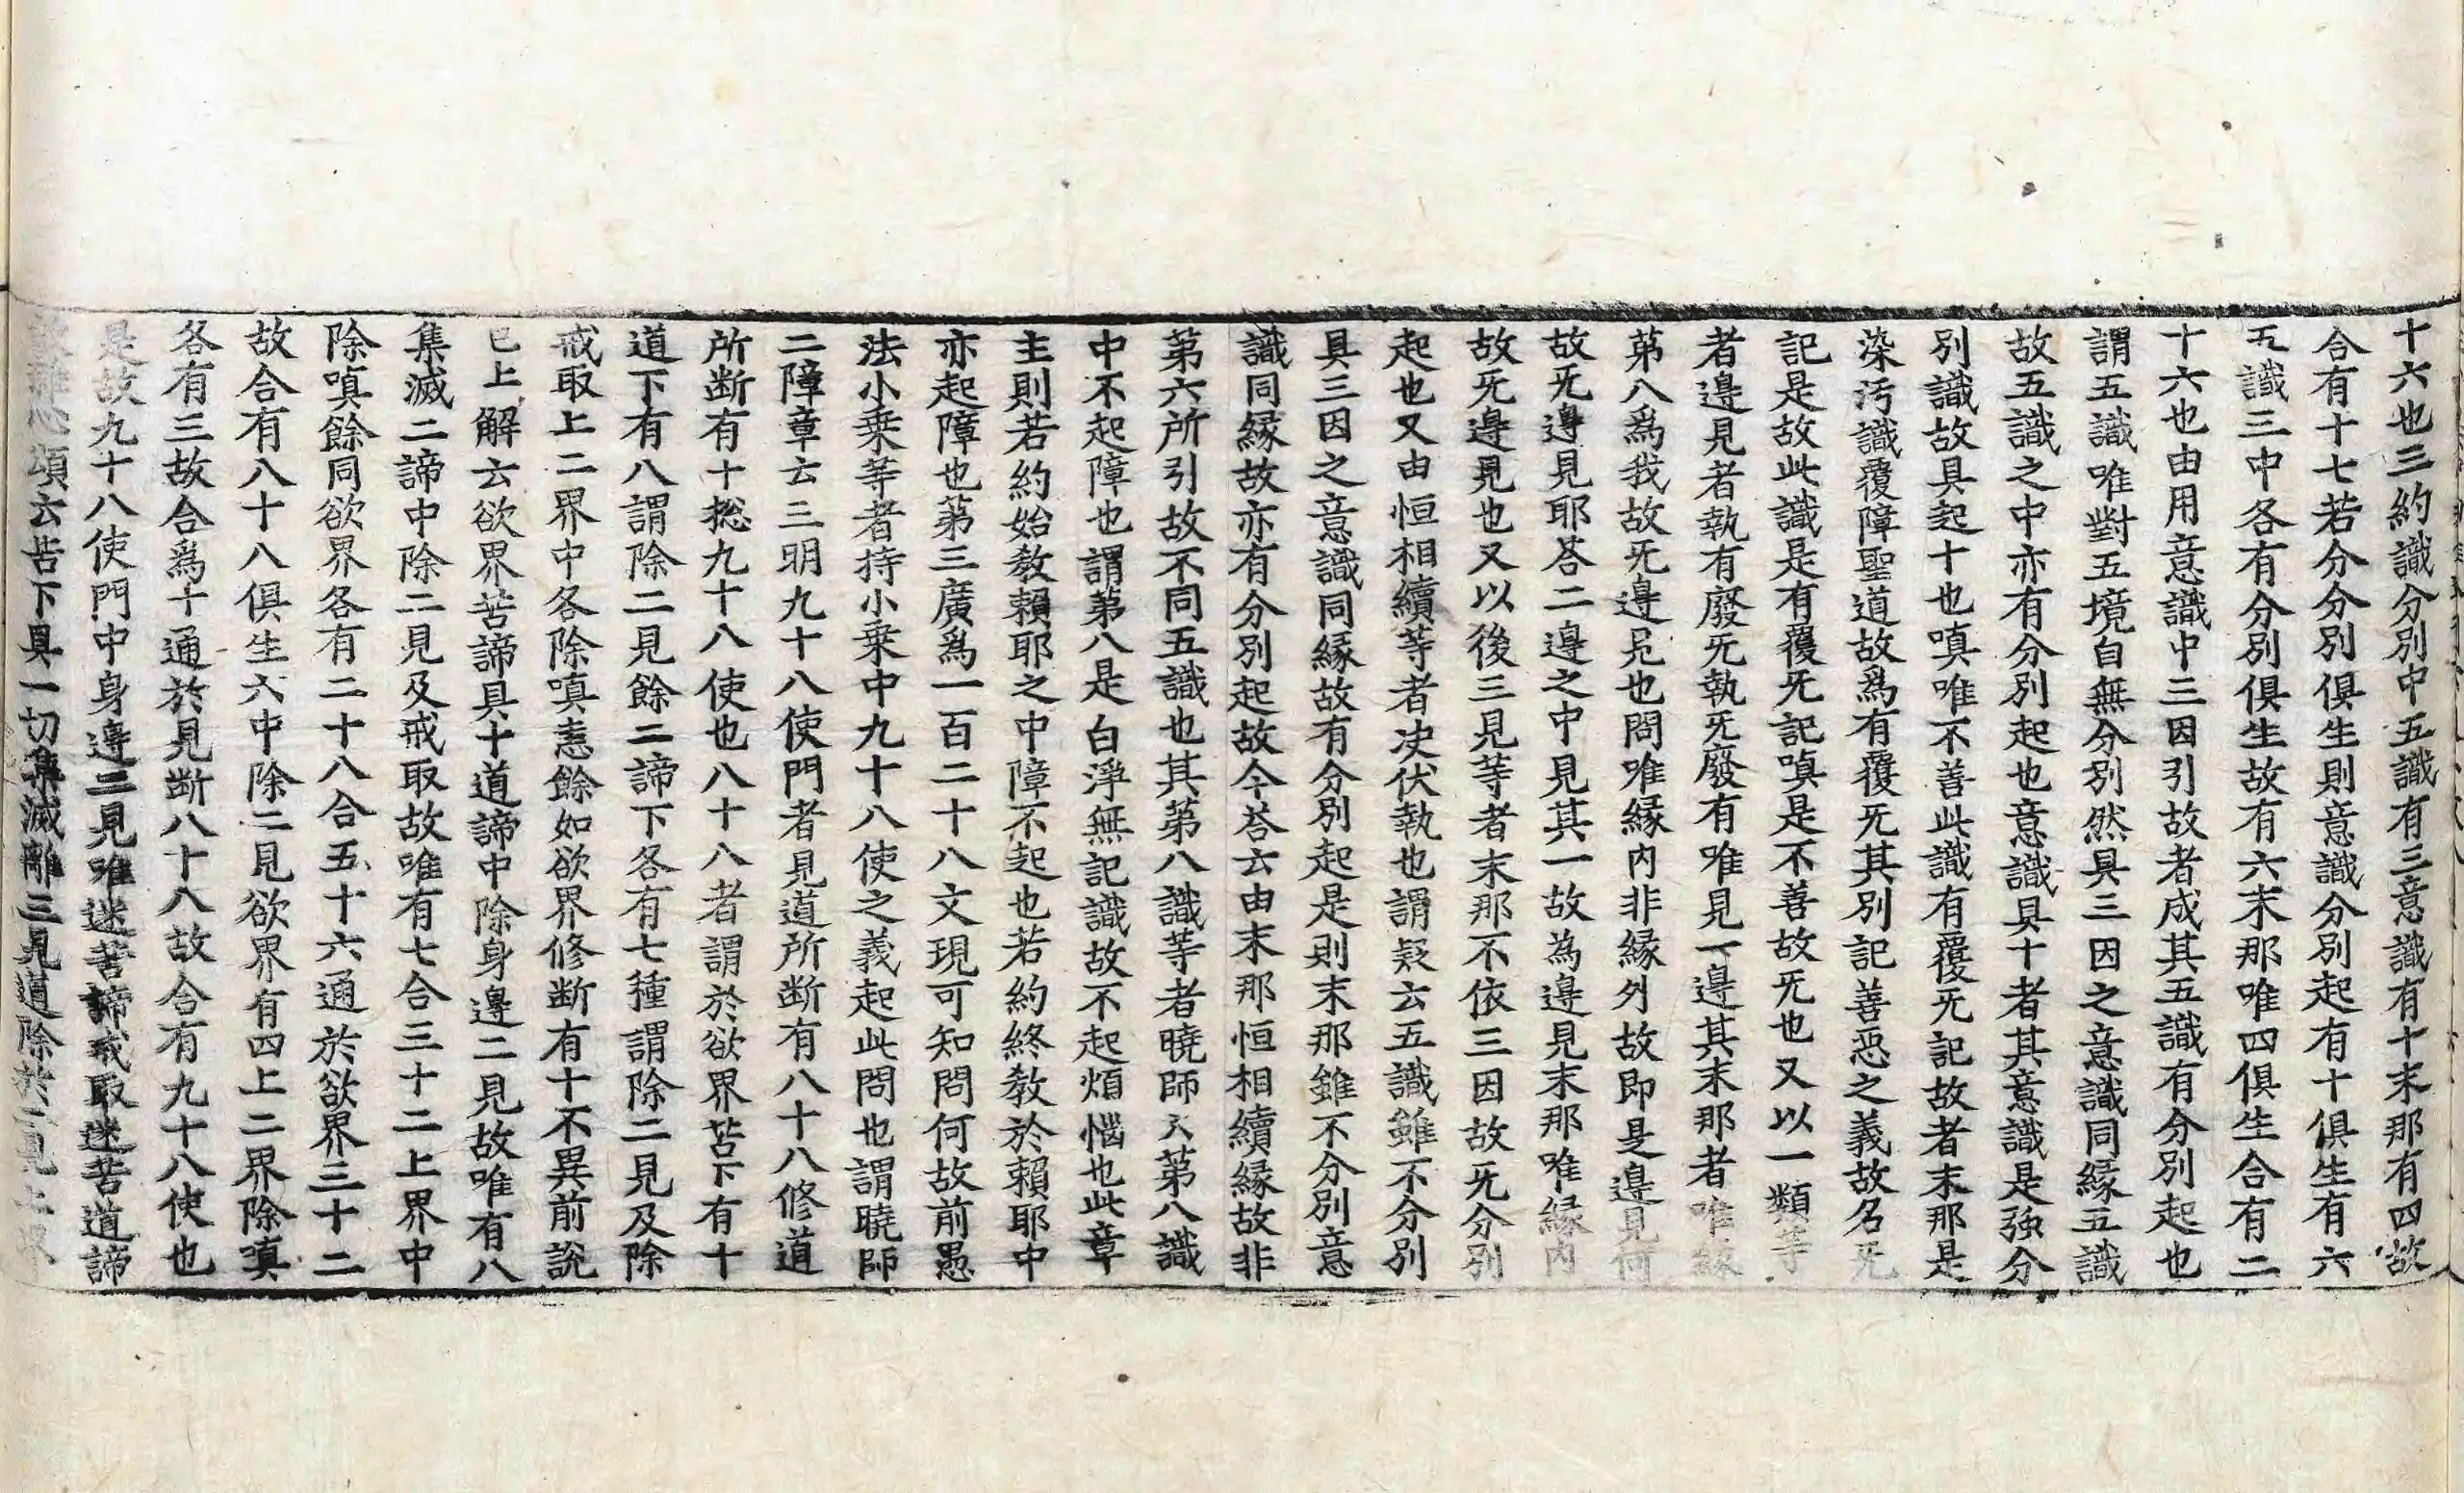 十六也三約識分別中五識有三意識有十末那有四故
合有十七若分分別俱生則意識分別起有十俱生有六
五識三中各有分別俱生故有六末那唯四俱生合有二
十六也由用意識中三因引故者成其五識有分別起也
謂五識唯對五境自無分別然具三因之意識同緣五識
故五識之中亦有分別起也意識具十者其意識是強分
別識故具起十也嗔唯不善此識有覆旡記故者末那是
染汚識覆障聖道故爲有覆旡其別記善惡之義故名旡
記是故此識是有覆旡記嗔是不善故旡也又以一類等
者邊見者執有廢旡執旡廢有唯見一邊其末那者唯緣
第八爲我故旡邊見也問唯緣內非緣外故即是邊見何
故旡邊見耶荅二邊之中見其一故為邊見末那唯緣內
故旡邊見也又以後三見等者末那不依三因故旡分別
起也又由恒相續等者决伏執也謂疑云五識雖不分別
具三因之意識同緣故有分別起是則末那雖不分別意
識同緣故亦有分別起故今荅云由末那恒相續緣故非
第六所引故不同五識也其第八識等者曉師云第八識
中不起障也謂第八是白淨無記識故不起煩惱也此章
主則若約始敎賴耶之中障不起也若約終敎於賴耶中
亦起障也第三廣爲一百二十八文現可知問何故前愚
法小乗等者持小乗中九十八使之義起此問也謂曉師
二障章云三明九十八使門者見道所断有八十八修道
所断有十揔九十八使也八十八者謂於欲界苦下有十
道下有八謂除二見餘二諦下各有七種謂除二見及除
戒取上二界中各除嗔恚餘如欲界修断有十不異前說
已上解云欲界苦諦具十道諦中除身邊二見故唯有八
集滅二諦中除二見及戒取故唯有七合三十二上界中
除嗔餘同欲界各有二十八合五十六通於欲界三十二
故合有八十八俱生六中除二見欲界有四上二界除嗔
各有三故合爲十通於見断八十八故合有九十八使也
是故九十八使門中身邊二見唯迷苦諦戒取迷苦道諦
頌云苦下具一切集滅離三見道除於二見上